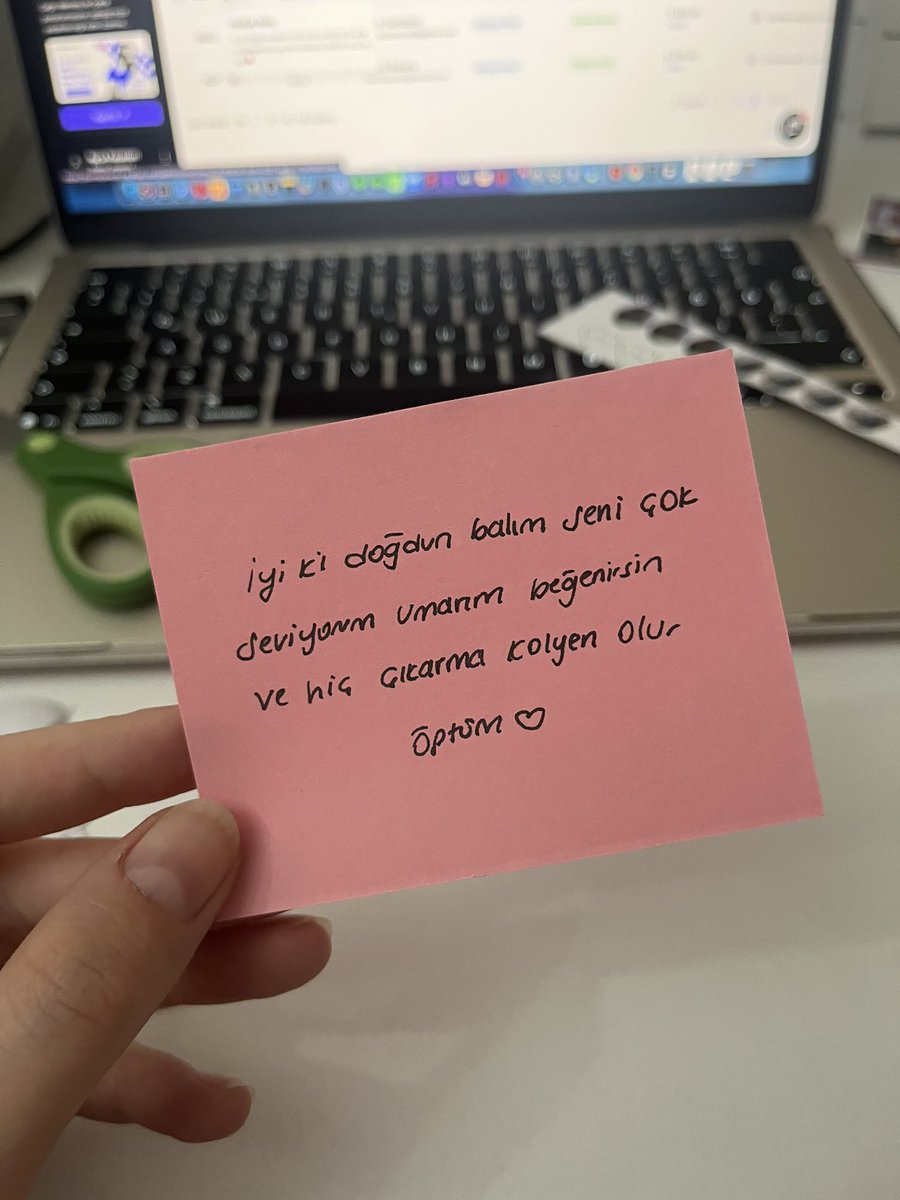 iyi ki doğdun balım seni çok
seviyorum umarım beğenirsin
ve hiç çıkarma kolyen olur
öptüm ♡